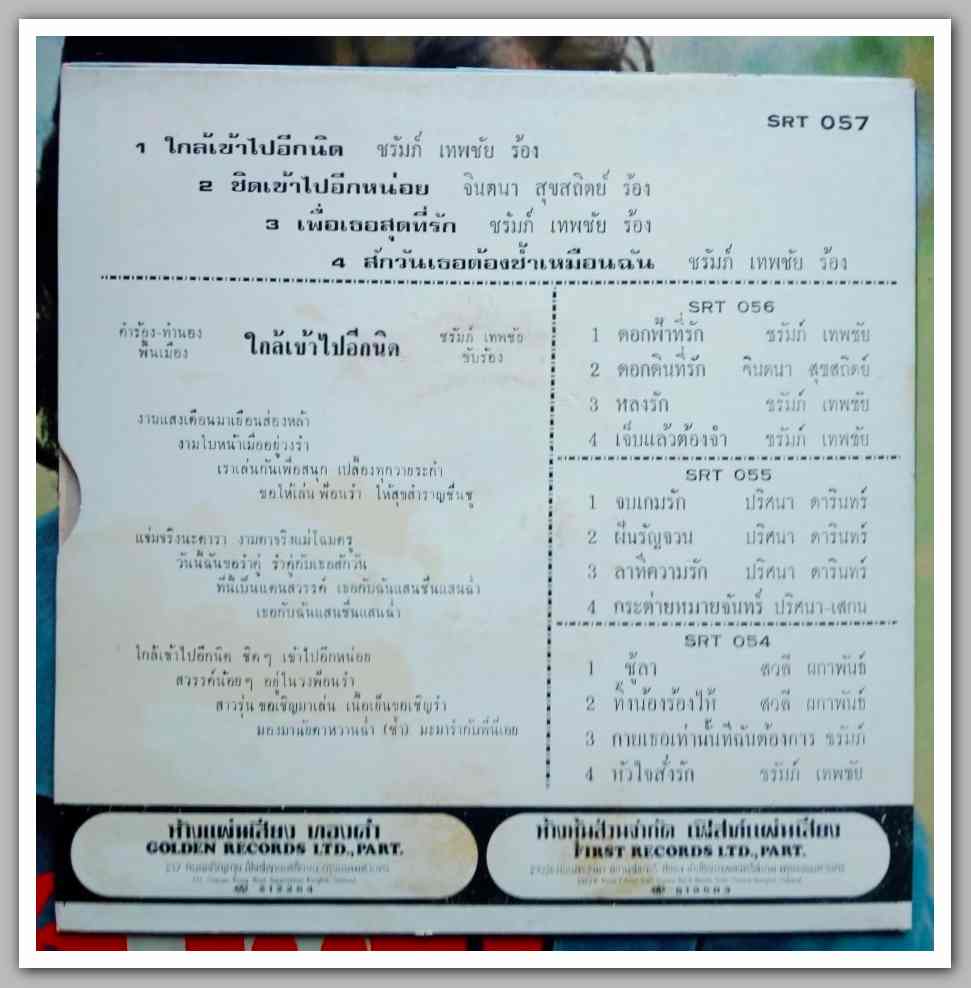 SRT 057
1 ใกล้เข้าไปอีกนิด ชรัมภ์ เทพชัย ร้อง
2 ชิดเข้าไปอีกหน่อย จินตนา สุขสถิตย์ ร้อง
3 เพื่อเธอสุดที่รัก ชรัมภ์ เทพชัย ร้อง
4 สักวันเธอต้องช้ำเหมือนฉัน ชรัมภ์ เทพชัย ร้อง
คำร้อง-ทำนอง
พื้นเมือง
ใกล้เข้าไปอีกนิด
ชรัมภ์ เทพชัย
ขับร้อง
งามแสงเดือนมาเยือนส่องหล้า
งามใบหน้าเมื่ออยู่วงรำ
เราเล่นกันเพื่อสนุก เปลื้องทุกวายระกำ
ขอให้เล่นฟ้อนรำ ให้สุขสำราญชื่นชู
แช่มจริงนะดารา งามตาจริงแม่โฉมตรู
วันนี้ฉันขอรำคู่ รำคู่กับเธอสักวัน
ที่นี้เป็นแดนสวรรค์ เธอกับฉันแสนชื่นแสนฉ่ำ
เธอกับฉันแสนชื่นแสนฉ่ำ
ใกล้เข้าไปอีกนิด ชิดๆ เข้าไปอีกหน่อย
สวรรค์น้อยๆ อยู่ในวงฟ้อนรำ
สาวรุ่น ขอเชิญมาเล่น เนื้อเย็นขอเชิญรำ
มองมานัยตาหวานฉ่ำ (ซ้ำ) มะมารำกับพี่นี่เอย
SRT 056
1 ดอกฟ้าที่รัก ชรัมภ์ เทพชัย
2 ดอกดินที่รัก จินตนา สุขสถิตย์
3 หลงรัก ชรัมภ์ เทพชัย
4 เจ็บแล้วต้องจำ ชรัมภ์ เทพชัย
SRT 055
1 จบเกมรัก ปริศนา ดารินทร์
2 ฝืนรัญจวน ปริศนา ดารินทร์
3 ลาที่ความรัก ปริศนา ดารินทร์
4 กระต่ายหมายจันทร์ ปริศนา-เสกน
SRT 054
1 ชู้ลา สวลี ผกาพันธ์
2 ทิ้งน้องร้องไห้ สวลี ผกาพันธ์
3 กายเธอเท่านั้นที่ฉันต้องการ ชรัมภ์
4 หัวใจสั่งรัก ชรัมภ์ เทพชัย
ห้างแผ่นเสียง ทองคำ
GOLDEN RECORDS LTD., PART.
ห้างหุ้นส่วนจำกัด เฟิสท์แผ่นเสียง
FIRST RECORDS LTD., PART.